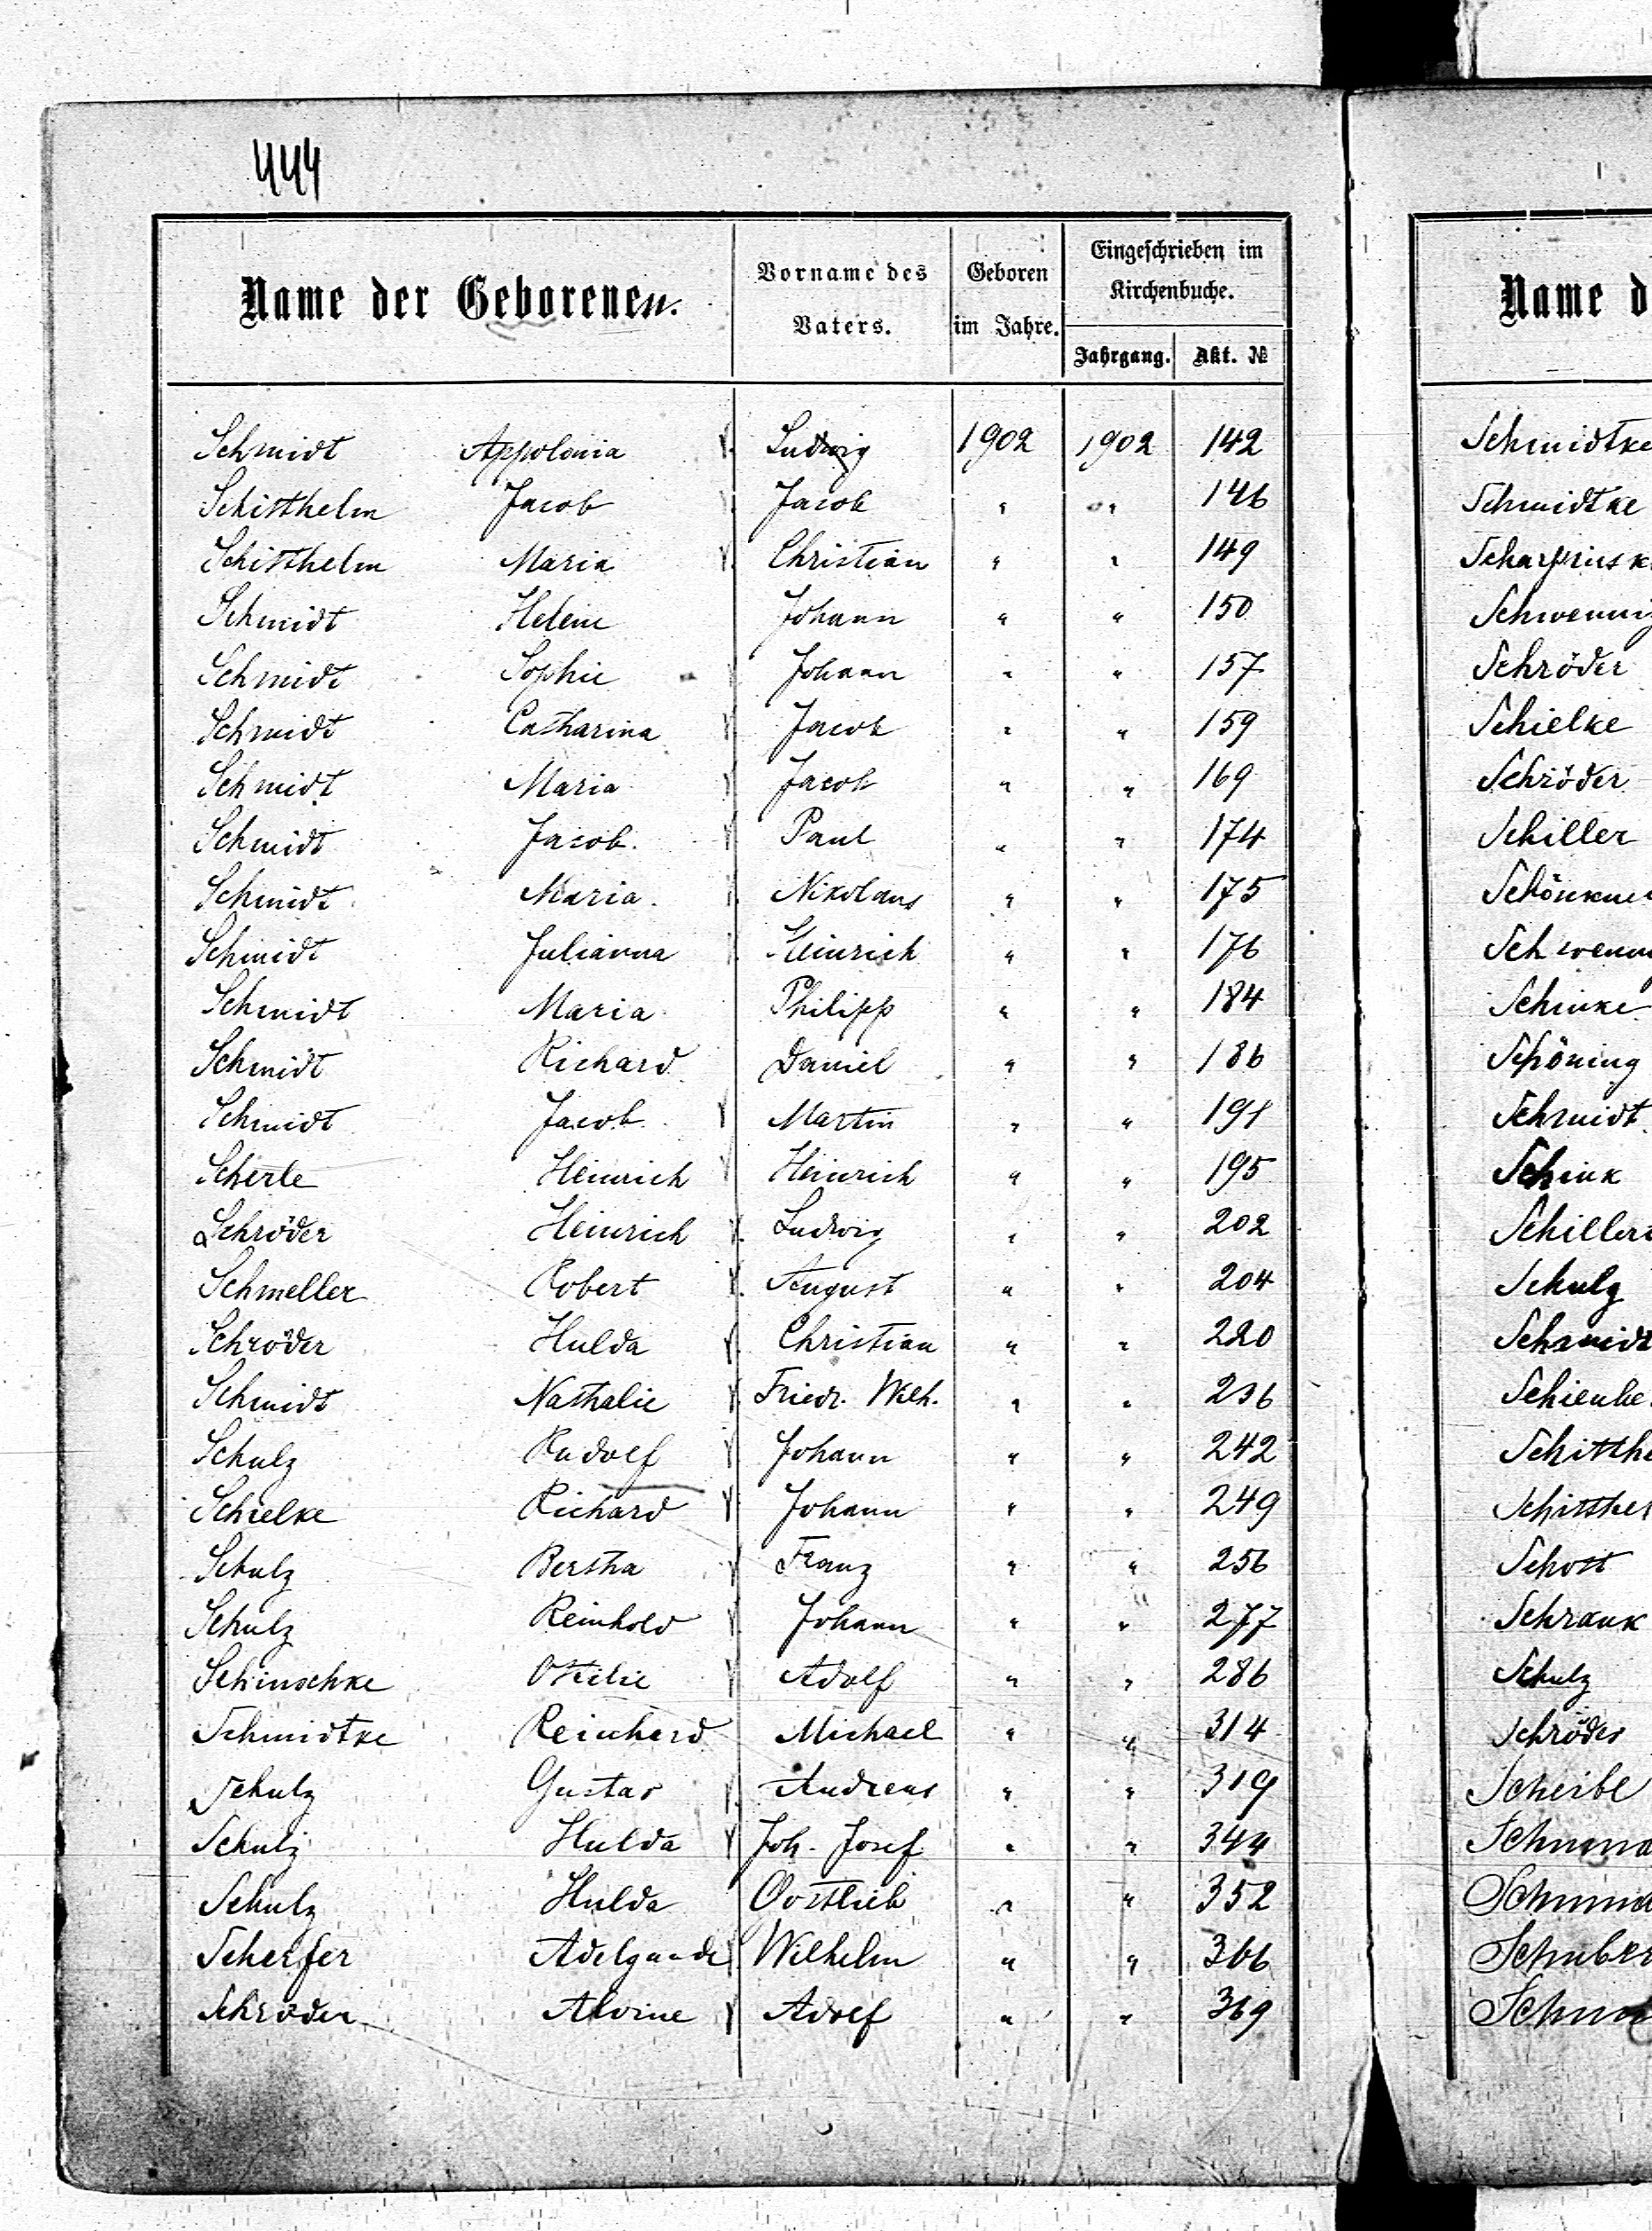 444
Name der Geborenen. Vorname des Vaters. Geboren im Jahre. Eingeschrieben im Kirchenbuche. Jahrgang. Akt. №
Schmidt Appolonia Ludwig 1902 1902 142
Schitthelm Jacob Jacob " " 146
Schitthelm Maria Christian " " 149
Schmidt Helene Johann " " 150
Schmidt Sophie Johann " " 157
Schmidt Catharina Jacob " " 159
Schmidt Maria Jacob " " 169
Schmidt Jacob. Paul " " 174
Schmidt Maria. Nikolaus " " 175
Schmidt Julianna Heinrich " " 176
Schmidt Maria Philipp " " 184
Schmidt Richard Daniel " " 186
Schmidt Jacob Martin " " 191
Scherle Heinrich Heinrich " " 195
Schröder Heinrich Ludwig " " 202
Schmeller Robert August " " 204
Schröder Hulda Christian " " 220
Schmidt Nathalie Friedr. Wilh. " " 236
Schulz Rudolf Johann " " 242
Schielke Richard Johann " " 249
Schulz Bertha Franz " " 256
Schulz Reinhold Johann " " 277
Schinschke Ottilie Adolf " " 286
Schmidtke Reinhard Michael " " 314
Schulz Gustav Andreas " " 319
Schulz Hulda Joh. Josef " " 344
Schulz Hulda Gottlieb " " 352
Scherfer Adelgunde Wilhelm " " 366
Schröder Alvine Adolf " " 369
Name d
Schmidtke
Schmidtke
Schröder
Schielke
Schröder
Schiller
Schinke
Schöning
Schmidt
Schink
Schulz
Schmidt
Schott
Schrank
Schulz
Schröder
Scheibl